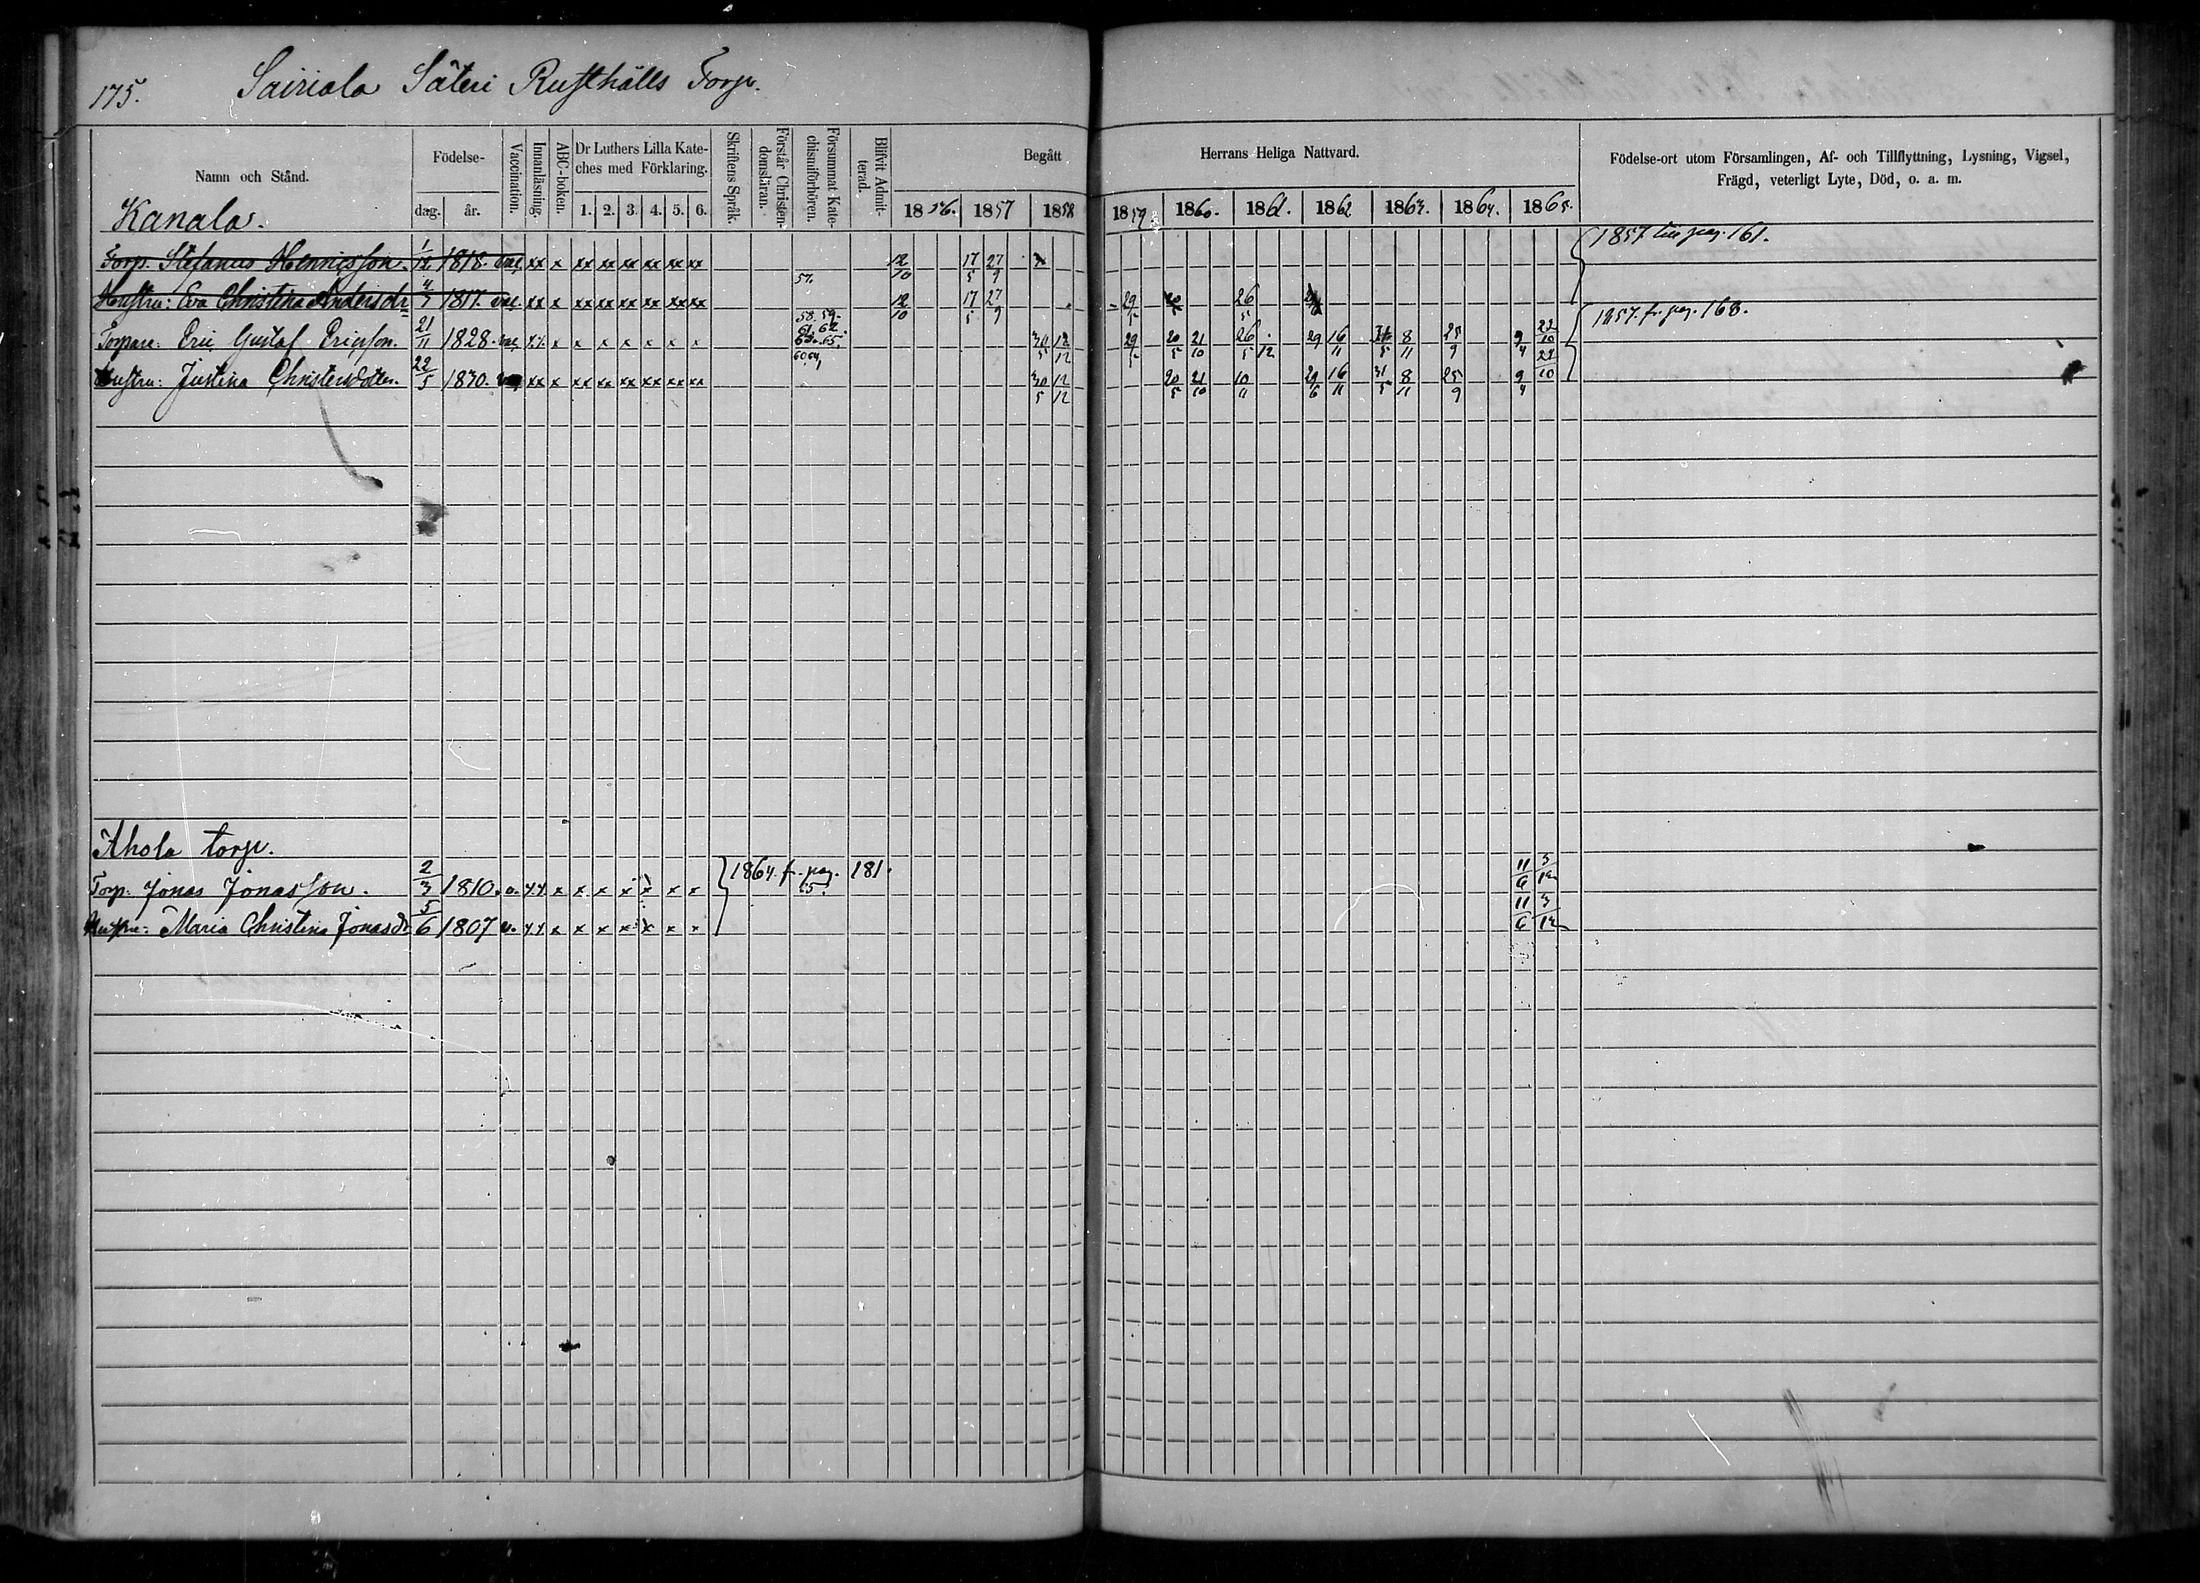 175. Sairiala Säteri Rusthålls Torp.
Namn och Stånd. Födelse- dag. år. Vaccination. Innanläsning. ABC-boken. Dr Luthers Lilla Kateches med Förklaring. 1. 2. 3. 4. 5. 6. Skriftens Språk. Förstår Christendomsläran. Försummat Katechismiförhören. Blifvit Admitterad. Begått Herrans Heliga Nattvard. Födelse-ort utom Församlingen, Af- och Tillflyttning, Lysning, Vigsel, Frägd, veterligt Lyte, Död, o. a. m.
1856. 1857 1858 1859. 1860. 1861. 1862 1863. 1864. 1865.
Kanala.
Torp. Stefanus Henricsson. 1/12 1818. vac. xx x xx xx xx xx xx xx 57. 12/10 17/5 27/9 x 1857 till pag. 161.
Hustru: Eva Christina Andersdr 4/7 1817. vac. xx x xx xx xx xx xx xx 12/10 17/5 27/9 29/5 26/5
Torpare: Eric Gustaf Ericsson. 21/11 1828. vac. xx x x x x x x x 58. 59. 61. 62. 63. 65. 30/5 12/12 29/5 20/5 21/10 26/5 12 29 16/11 31/5 8/11 25/9 9/4 22/10 1857. fr. pag. 168.
Hustru: Justina Christersdotter. 22/5 1830. xx x xx xx xx xx xx xx 60 64, 30/5 12/12 20/5 21/10 10/11 29/6 16/11 31/5 8/11 25/9 9/4 22/10
Ahola torp.
Torp: Jonas Jonasson. 2/3 1810. v. xx x x x x x x x 1864. f. pag. 181. 65. 11/6 3/12
Hustru: Maria Christina Jonasdr 5/6 1807 v. xx x x x x x x x 11/6 3/12